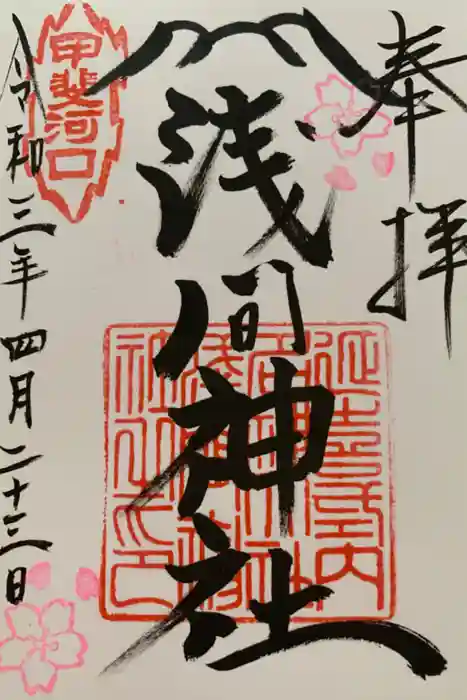 奉拝
浅間神社
延喜式内
甲斐河口
令和三年四月二十三日